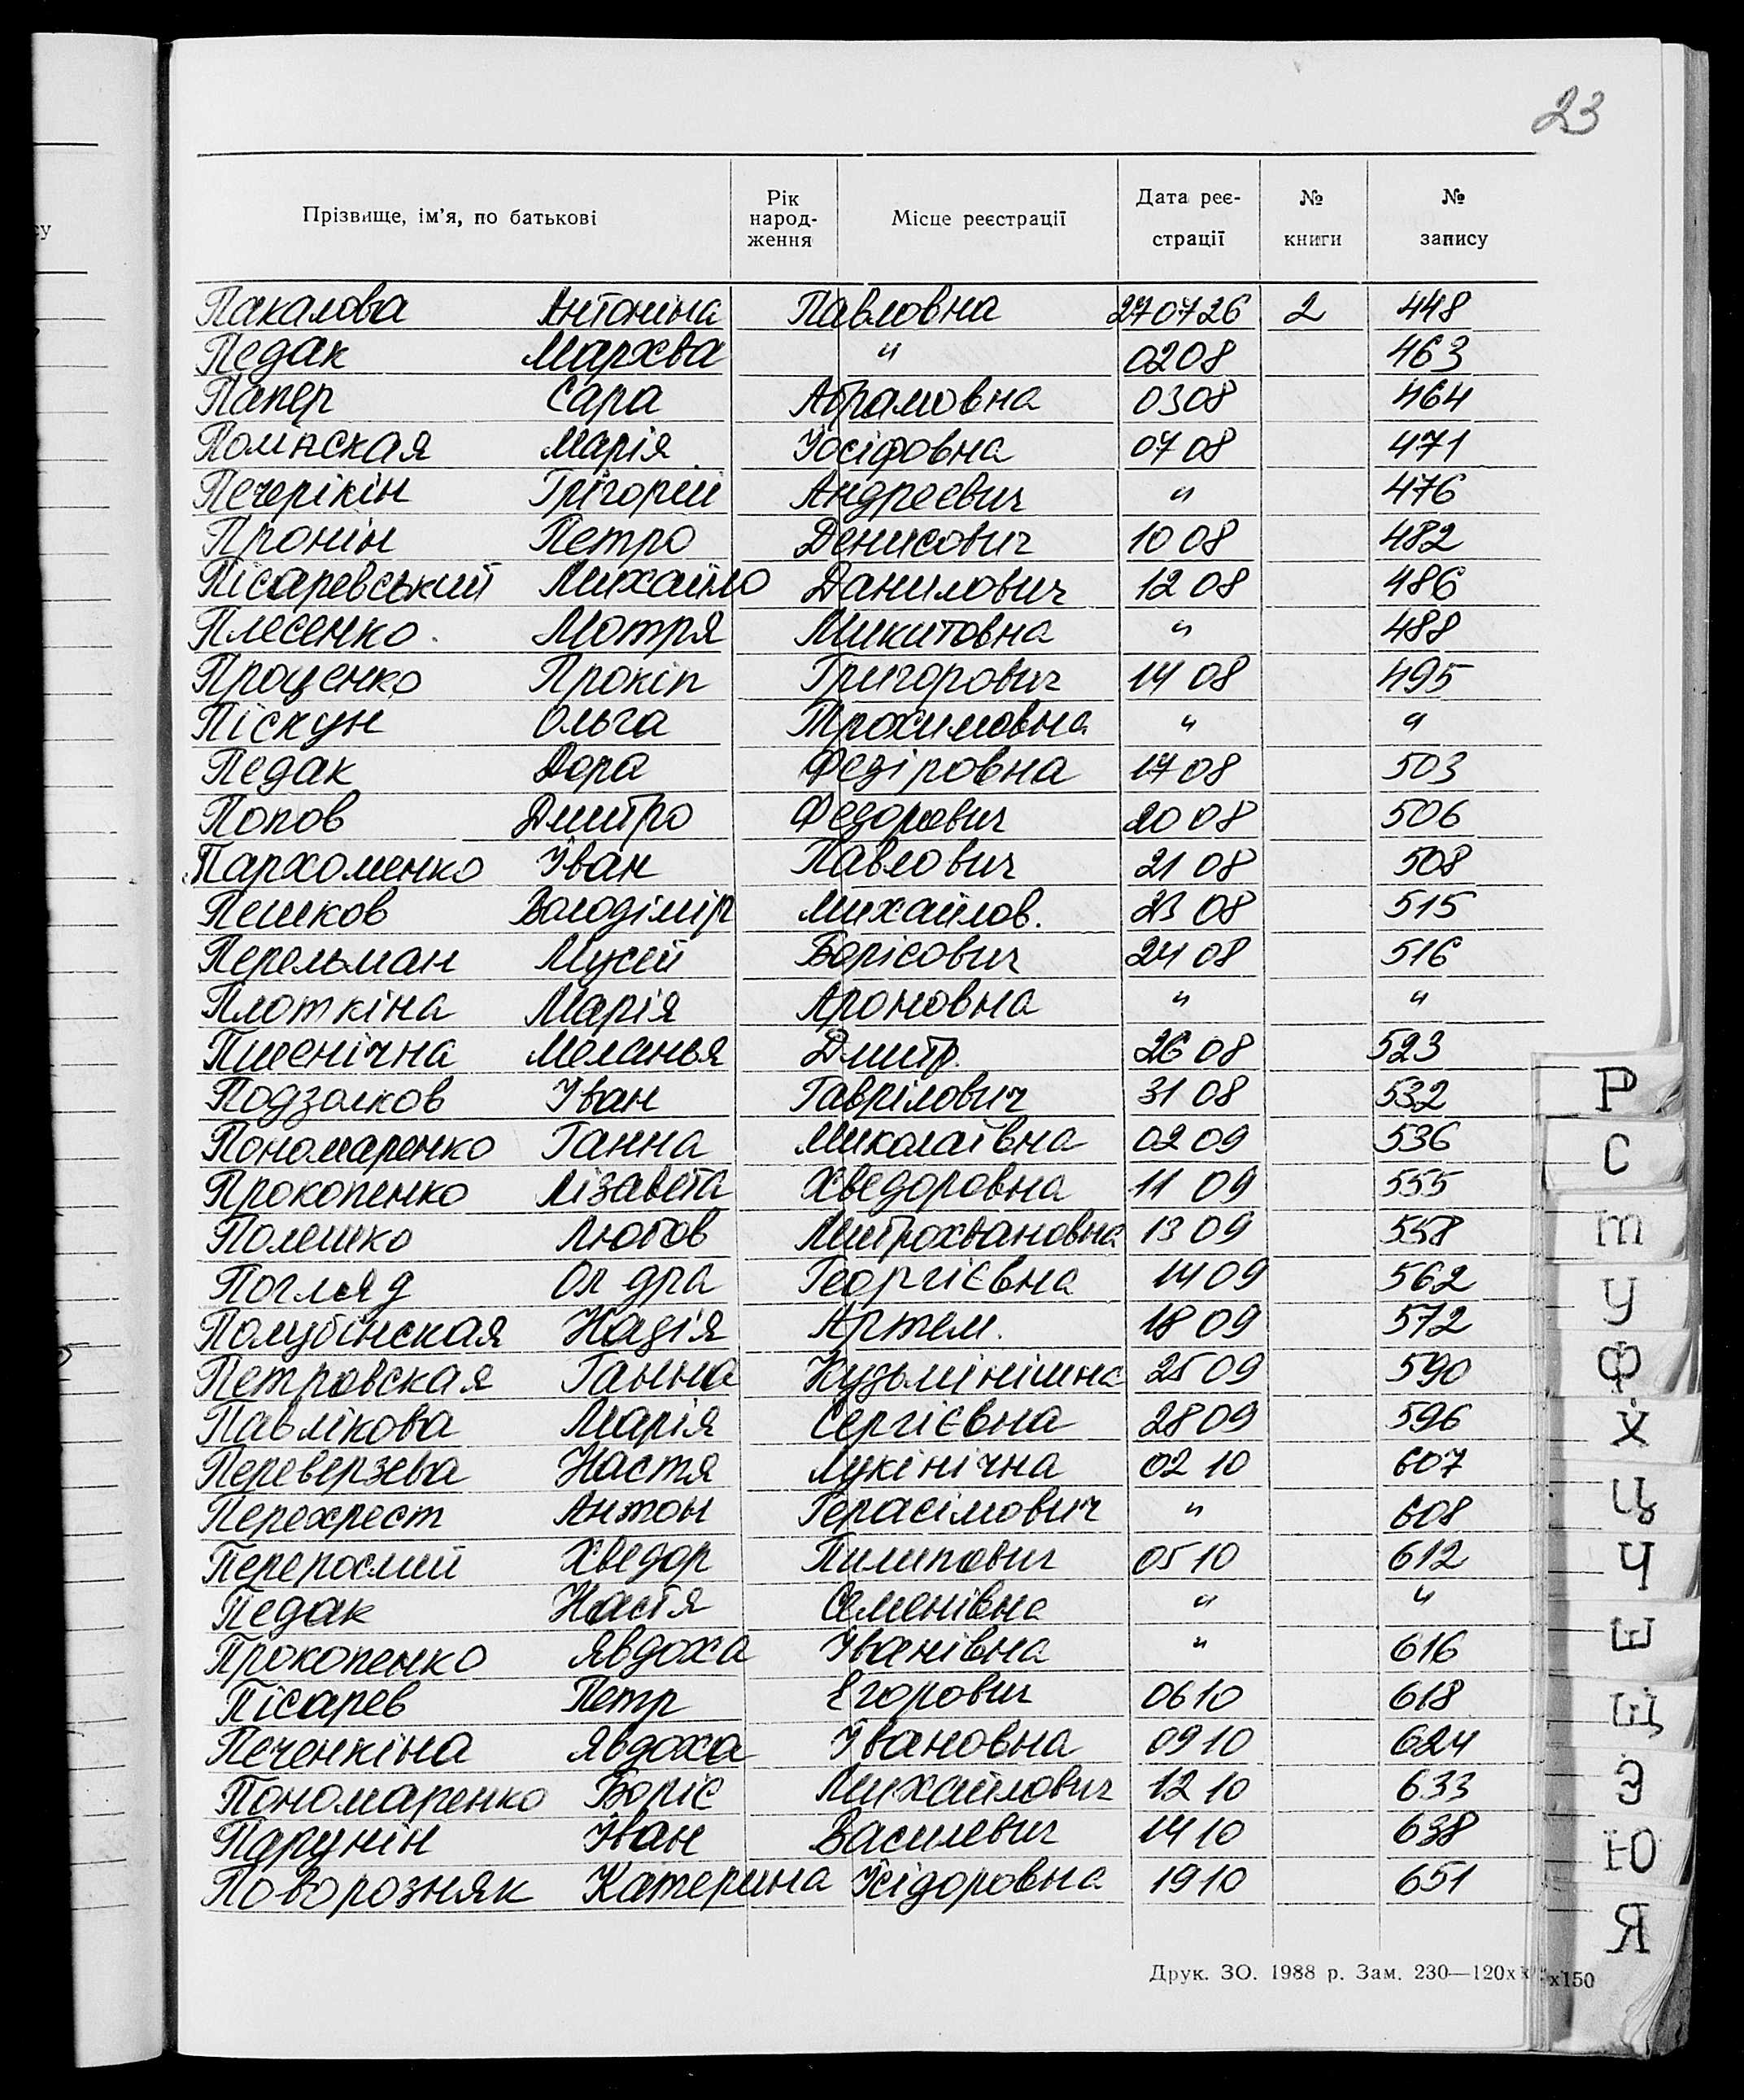 23
Прізвище, ім'я, по батькові Рік народ-ження Місце реєстрації Дата реє-страції № книги № запису
Пакалова Антоніна Павловна 270726 2 448
Педак Мархва " 0208 463
Папер Сара Абрамовна 0308 464
Помінская Марія Йосіфовна 0708 471
Печерікін Грігорій Андреевич " 476
Пронін Петро Денисович 1008 482
Пісаревський Михайло Данилович 1208 486
Плесенко Мотря Микитовна " 488
Проценко Прокіп Григорович 1408 495
Піскун Ольга Трохимовна " "
Педак Дора Федіровна 1708 503
Попов Дмитро Федорович 2008 506
Пархоменко Іван Павлович 2108 508
Пешков Володімір Михайлов. 2308 515
Перельман Мусій Борісович 2408 516
Плоткіна Марія Ароновна " "
Пшенічна Меланья Дмитр. 2608 523
Подзолков Іван Гаврілович 3108 532
Пономаренко Ганна Миколаївна 0209 536
Прокопенко Лізавета Хведоровна 1109 555
Полешко Любов Митрохвановна 1309 558
Погляд Ол дра Георгієвна 1409 562
Полубінская Надія Артем. 1809 572
Петровская Ганна Кузьмінішна 2509 590
Павлікова Марія Сергієвна 2809 596
Переверзева Настя Лукінічна 0210 607
Перехрест Антон Герасімович " 608
Хведор Пилипович 0510 612
Педак Настя Семенівна " "
Прокопенко Явдоха Іванівна " 616
Пісарев Петр Єгорович 0610 618
Печенкіна Явдоха Івановна 0910 624
Пономаренко Боріс Михайлович 1210 633
Парунін Іван Василевич 1410 638
Поворозняк Катерина Ісідоровна 1910 651
Друк. ЗО. 1988 р. Зам. 230—120х
х150
Р
С
т
У
Ф
Х
Ц
Ч
Ш
Щ
Э
Ю
Я